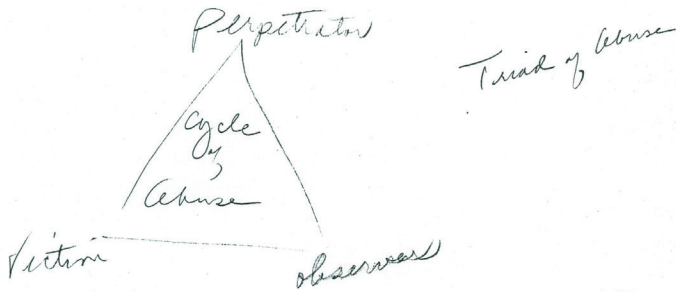 Perpetrator
Triad of Abuse
Cycle
of
Abuse
Victim
observers